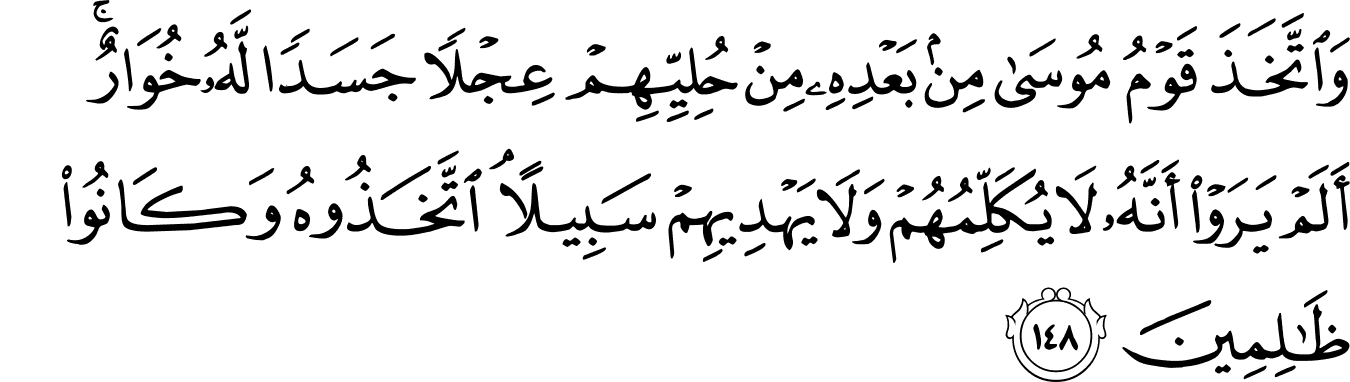 وَٱتَّخَذَ قَوْمُ مُوسَىٰ مِنۢ بَعْدِهِۦ مِنْ حُلِيِّهِمْ عِجْلًا جَسَدًا لَّهُۥ خُوَارٌ ۚ
أَلَمْ يَرَوْا۟ أَنَّهُۥ لَا يُكَلِّمُهُمْ وَلَا يَهْدِيهِمْ سَبِيلًا ۘ ٱتَّخَذُوهُ وَكَانُوا۟
ظَـٰلِمِينَ ١٤٨